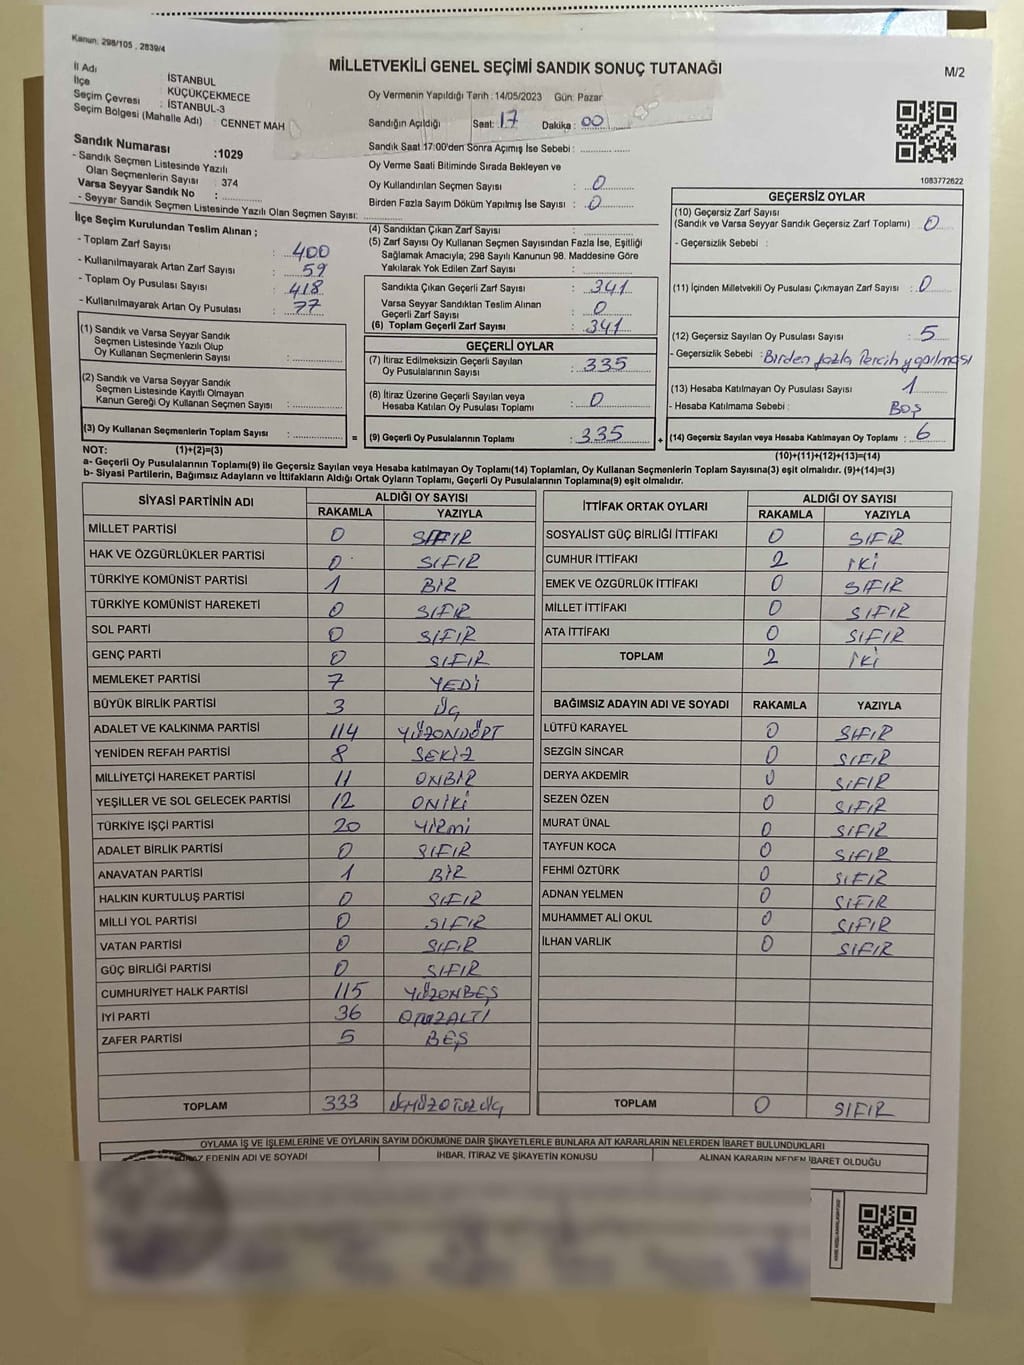 Kanun: 298/105 , 2839/4
MİLLETVEKİLİ GENEL SEÇİMİ SANDIK SONUÇ TUTANAĞI
M/2
İl Adı : İSTANBUL
İlçe : KÜÇÜKÇEKMECE
Seçim Çevresi : İSTANBUL-3
Seçim Bölgesi (Mahalle Adı) : CENNET MAH
Sandık Numarası :1029
- Sandık Seçmen Listesinde Yazılı
Olan Seçmenlerin Sayısı : 374
Varsa Seyyar Sandık No :
- Seyyar Sandık Seçmen Listesinde Yazılı Olan Seçmen Sayısı:
Oy Vermenin Yapıldığı Tarih : 14/05/2023 Gün: Pazar
Sandığın Açıldığı Saat: 17 Dakika : 00
Sandık Saat 17:00'den Sonra Açımış İse Sebebi :
Oy Verme Saati Bitiminde Sırada Bekleyen ve
Oy Kullandırılan Seçmen Sayısı : 0
Birden Fazla Sayım Döküm Yapılmış İse Sayısı : 0
1083772622
İlçe Seçim Kurulundan Teslim Alınan ;
- Toplam Zarf Sayısı : 400
- Kullanılmayarak Artan Zarf Sayısı : 59
- Toplam Oy Pusulası Sayısı : 418
- Kullanılmayarak Artan Oy Pusulası : 77
(1) Sandık ve Varsa Seyyar Sandık
Seçmen Listesinde Yazılı Olup
Oy Kullanan Seçmenlerin Sayısı :
(2) Sandık ve Varsa Seyyar Sandık
Seçmen Listesinde Kayıtlı Olmayan
Kanun Gereği Oy Kullanan Seçmen Sayısı :
(3) Oy Kullanan Seçmenlerin Toplam Sayısı :
(4) Sandıktan Çıkan Zarf Sayısı :
(5) Zarf Sayısı Oy Kullanan Seçmen Sayısından Fazla İse, Eşitliği
Sağlamak Amacıyla; 298 Sayılı Kanunun 98. Maddesine Göre
Yakılarak Yok Edilen Zarf Sayısı :
Sandıkta Çıkan Geçerli Zarf Sayısı : 341
Varsa Seyyar Sandıktan Teslim Alınan
Geçerli Zarf Sayısı : 0
(6) Toplam Geçerli Zarf Sayısı : 341
GEÇERLİ OYLAR
(7) İtiraz Edilmeksizin Geçerli Sayılan
Oy Pusulalarının Sayısı : 335
(8) İtiraz Üzerine Geçerli Sayılan veya
Hesaba Katılan Oy Pusulası Toplamı : 0
= (9) Geçerli Oy Pusulalarının Toplamı : 335
GEÇERSİZ OYLAR
(10) Geçersiz Zarf Sayısı
(Sandık ve Varsa Seyyar Sandık Geçersiz Zarf Toplamı) : 0
- Geçersizlik Sebebi :
(11) İçinden Milletvekili Oy Pusulası Çıkmayan Zarf Sayısı : 0
(12) Geçersiz Sayılan Oy Pusulası Sayısı : 5
- Geçersizlik Sebebi : Birden fazla tercih yapılması
(13) Hesaba Katılmayan Oy Pusulası Sayısı : 1
- Hesaba Katılmama Sebebi : BOŞ
+ (14) Geçersiz Sayılan veya Hesaba Katılmayan Oy Toplamı : 6
NOT: (1)+(2)=(3)
(10)+(11)+(12)+(13)=(14)
a- Geçerli Oy Pusulalarının Toplamı(9) ile Geçersiz Sayılan veya Hesaba katılmayan Oy Toplamı(14) Toplamları, Oy Kullanan Seçmenlerin Toplam Sayısına(3) eşit olmalıdır. (9)+(14)=(3)
b- Siyasi Partilerin, Bağımsız Adayların ve İttifakların Aldığı Ortak Oyların Toplamı, Geçerli Oy Pusulalarının Toplamına(9) eşit olmalıdır.
SİYASİ PARTİNİN ADI ALDIĞI OY SAYISI
RAKAMLA YAZIYLA
MİLLET PARTİSİ 0 SIFIR
HAK VE ÖZGÜRLÜKLER PARTİSİ 0 SIFIR
TÜRKİYE KOMÜNİST PARTİSİ 1 BİR
TÜRKİYE KOMÜNİST HAREKETİ 0 SIFIR
SOL PARTİ 0 SIFIR
GENÇ PARTİ 0 SIFIR
MEMLEKET PARTİSİ 7 YEDİ
BÜYÜK BİRLİK PARTİSİ 3 ÜÇ
ADALET VE KALKINMA PARTİSİ 114 YÜZONDÖRT
YENİDEN REFAH PARTİSİ 8 SEKİZ
MİLLİYETÇİ HAREKET PARTİSİ 11 ONBİR
YEŞİLLER VE SOL GELECEK PARTİSİ 12 ONİKİ
TÜRKİYE İŞÇİ PARTİSİ 20 YİRMİ
ADALET BİRLİK PARTİSİ 0 SIFIR
ANAVATAN PARTİSİ 1 BİR
HALKIN KURTULUŞ PARTİSİ 0 SIFIR
MİLLİ YOL PARTİSİ 0 SIFIR
VATAN PARTİSİ 0 SIFIR
GÜÇ BİRLİĞİ PARTİSİ 0 SIFIR
CUMHURİYET HALK PARTİSİ 115 YÜZONBEŞ
İYİ PARTİ 36 OTUZALTI
ZAFER PARTİSİ 5 BEŞ
TOPLAM 333 ÜÇYÜZOTUZÜÇ
İTTİFAK ORTAK OYLARI ALDIĞI OY SAYISI
RAKAMLA YAZIYLA
SOSYALİST GÜÇ BİRLİĞİ İTTİFAKI 0 SIFIR
CUMHUR İTTİFAKI 2 İKİ
EMEK VE ÖZGÜRLÜK İTTİFAKI 0 SIFIR
MİLLET İTTİFAKI 0 SIFIR
ATA İTTİFAKI 0 SIFIR
TOPLAM 2 İKİ
BAĞIMSIZ ADAYIN ADI VE SOYADI RAKAMLA YAZIYLA
LÜTFÜ KARAYEL 0 SIFIR
SEZGİN SİNCAR 0 SIFIR
DERYA AKDEMİR 0 SIFIR
SEZEN ÖZEN 0 SIFIR
MURAT ÜNAL 0 SIFIR
TAYFUN KOCA 0 SIFIR
FEHMİ ÖZTÜRK 0 SIFIR
ADNAN YELMEN 0 SIFIR
MUHAMMET ALİ OKUL 0 SIFIR
İLHAN VARLIK 0 SIFIR
TOPLAM 0 SIFIR
OYLAMA İŞ VE İŞLEMLERİNE VE OYLARIN SAYIM DÖKÜMÜNE DAİR ŞİKAYETLERLE BUNLARA AİT KARARLARIN NELERDEN İBARET BULUNDUKLARI
EDENİN ADI VE SOYADI İHBAR, İTİRAZ VE ŞİKAYETİN KONUSU ALINAN KARARIN NEDEN İBARET OLDUĞU